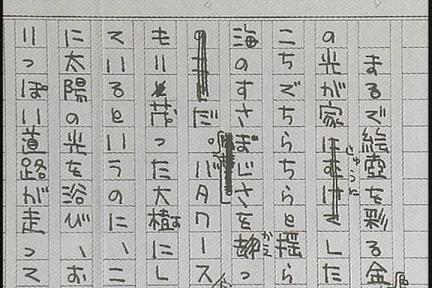 まるで絵壺を彩る金
の光が家じゅうにさした
こちでちらちらと揺ら
海のすさまじさを
だ。バタワース
もり茂った大植にし
ているというのに、ニ
に太陽の光を浴び、お
りっぽい道路が走って